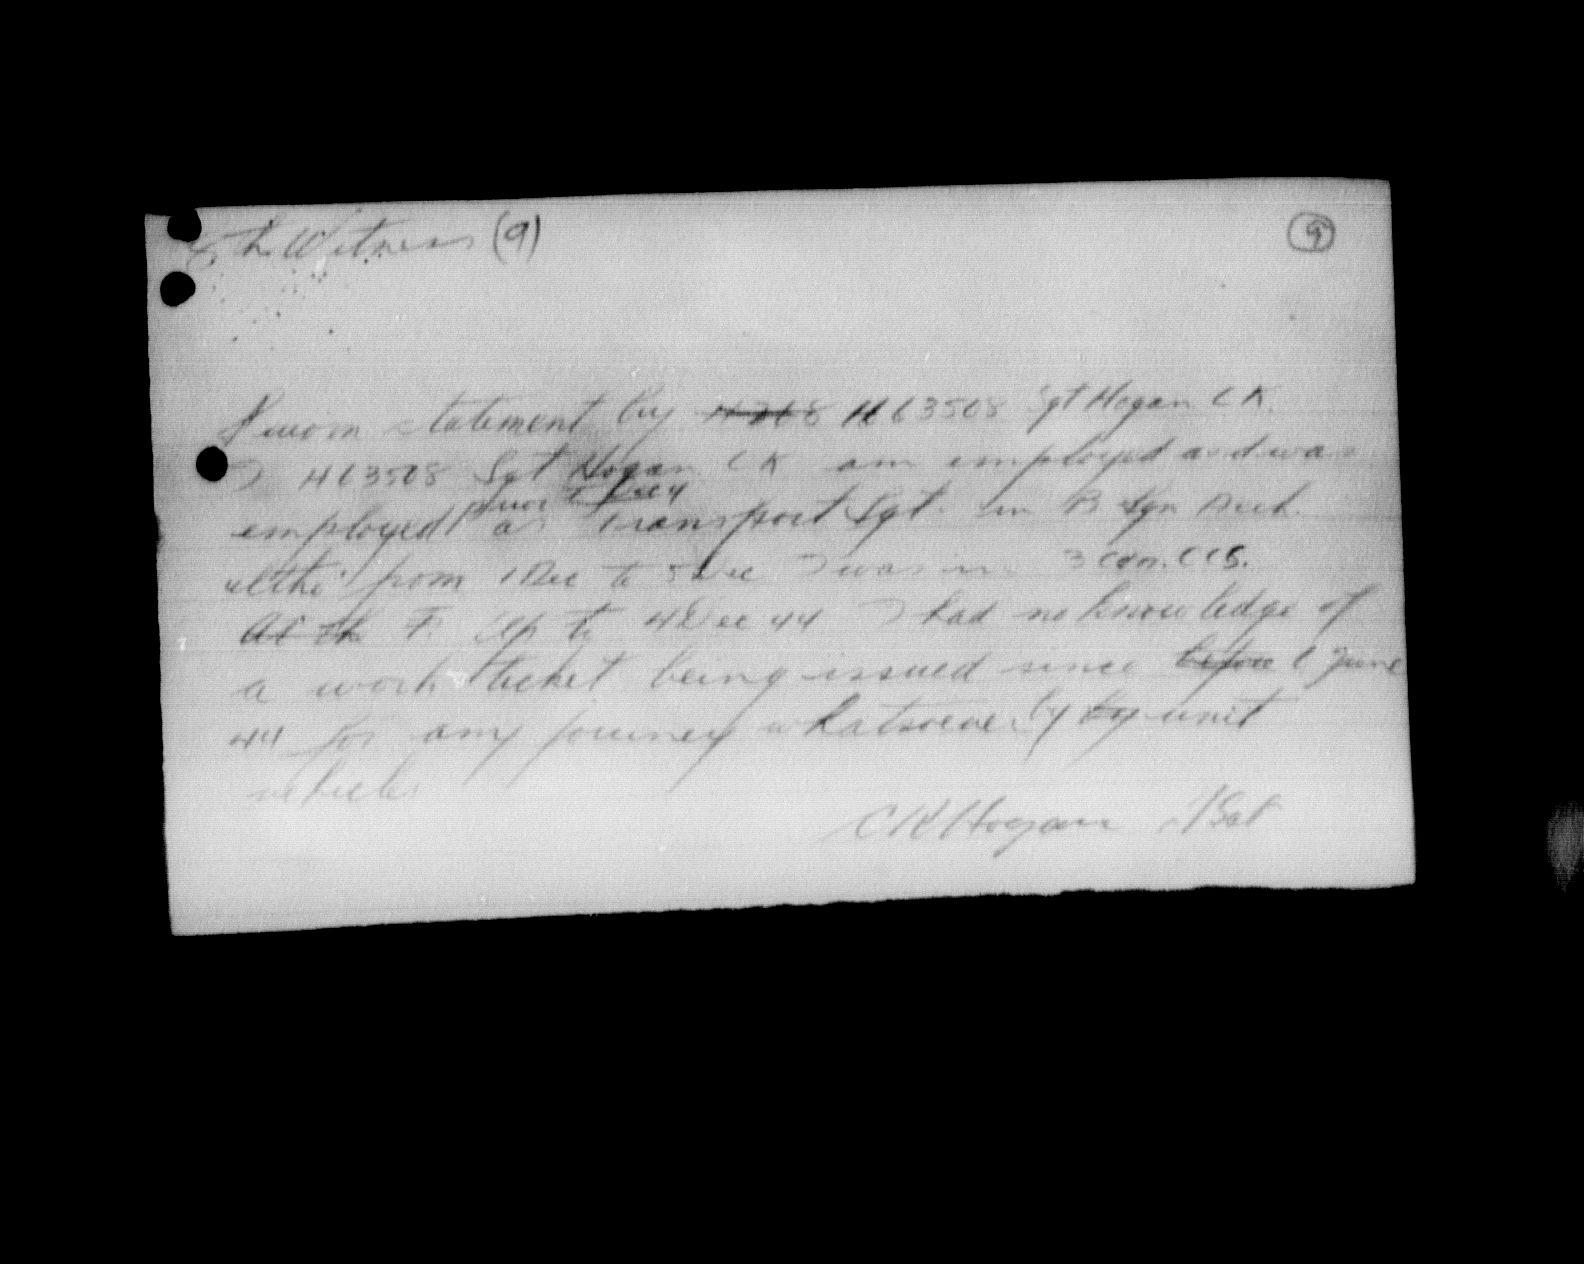 Witness (9)
9
Sworn statement by H63508 Sgt Hogan C K.
I H63508 Sgt Hogan C K am employed and was
employed prior to Dec 4 as Transport Sgt. in B
from 1 Dec to 5 Dec I was in 3 Cdn. CCS.
At the F. Up to 4 Dec 44 I had no knowledge of
a work ticket being issued since before 6 June
44 for any journey whatsoever by by unit
vehicles
C K Hogan Sgt